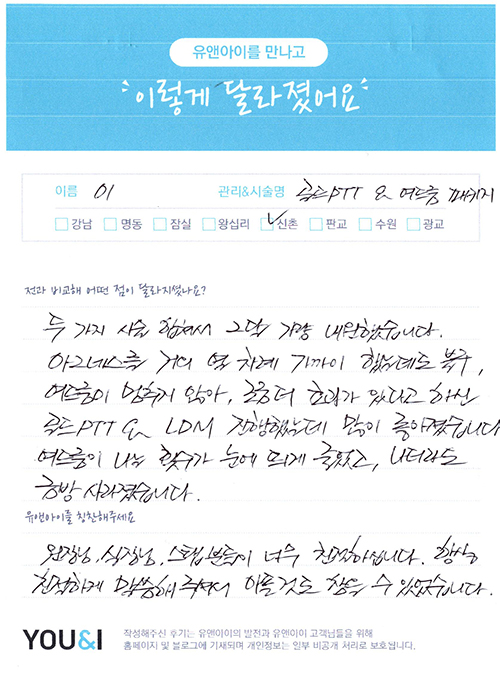 유앤아이를 만나고
이렇게 달라졌어요
이름 이 관리&시술명 골드PTT & 여드름 패키지
강남 명동 잠실 왕십리 신촌 판교 수원 광교
전과 비교해 어떤 점이 달라지셨나요?
두 가지 시술 합쳐서 그달 가량 내원했습니다.
아그네스를 거의 열 차례 가까이 했는데도 불구,
여드름이 멈추지 않아, 좀 더 효과가 있다고 하신
골드PTT & LDM 진행했는데 많이 좋아졌습니다
여드름이 나는 횟수가 눈에 띄게 줄었고, 나더라도
금방 사라졌습니다.
유앤아이를 칭찬해주세요
원장님, 실장님, 스탭분들이 너무 친절하십니다. 항상
친절하게 말씀해 주셔서 아픈것도 참을 수 있었습니다.
YOU&I
작성해주신 후기는 유앤아이의 발전과 유앤아이 고객님들을 위해
홈페이지 및 블로그에 기재되며 개인정보는 일부 비공개 처리로 보호됩니다.